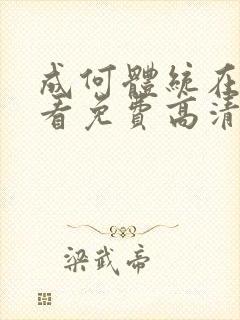 成何體統在
看免費高清
梁武帝